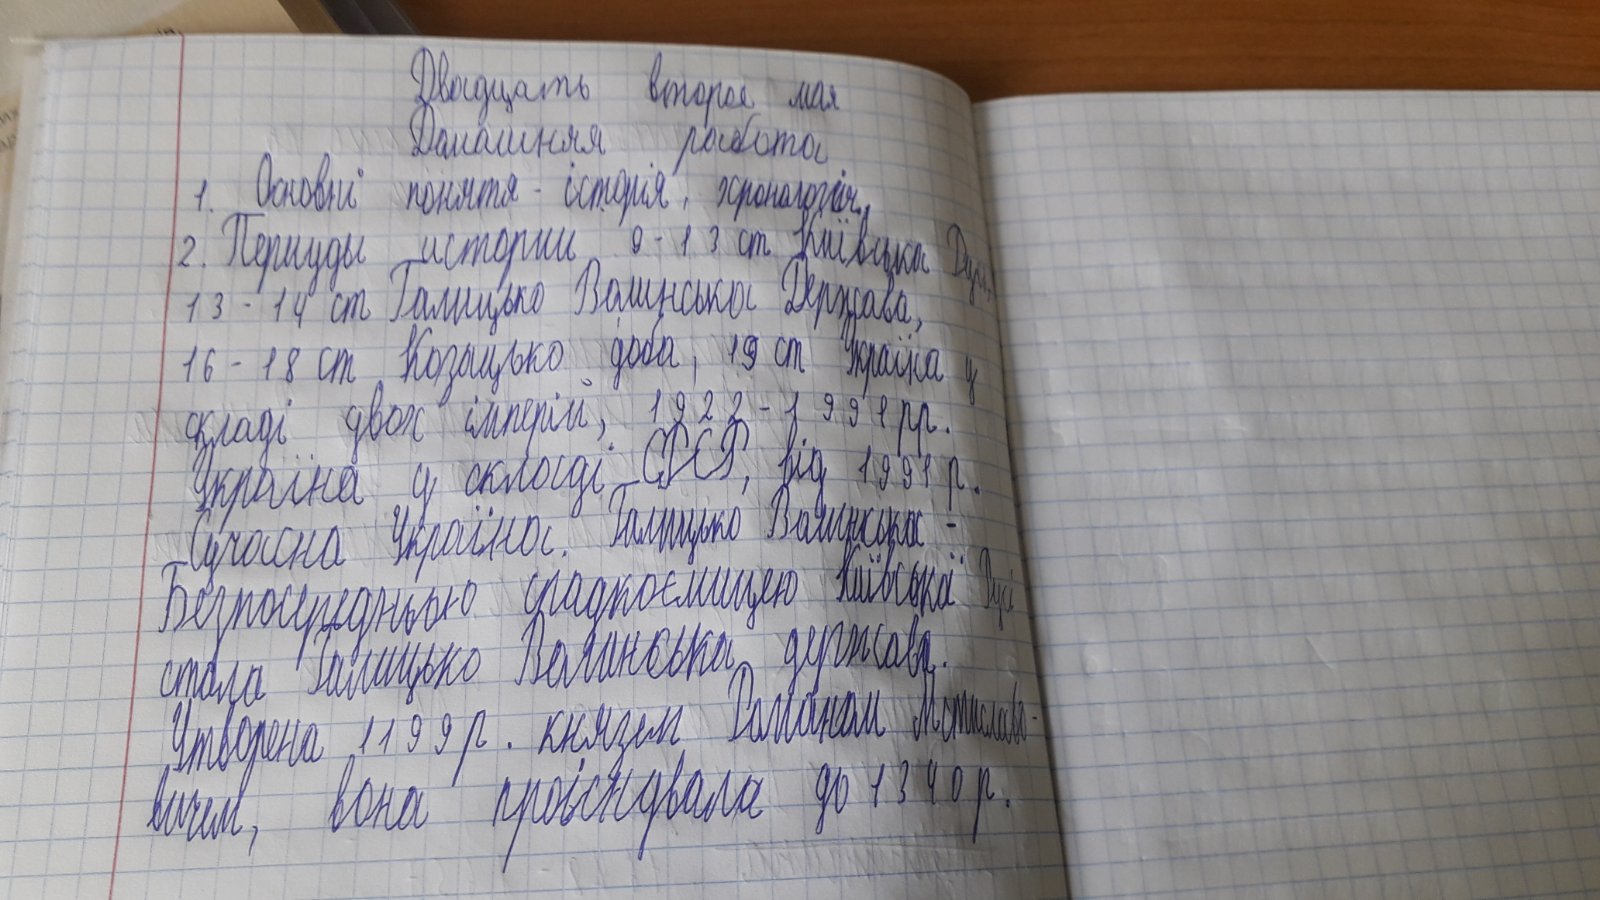 Двадцать второе мая
Домашняя работа
1. Основні поняття - історія, хронологія,
2. Периуды истории 9-13 ст Київська Русь,
13-14 ст Галицько Волинська Держава,
16-18 ст Козацько доба, 19 ст Україна у
складі двох імперій, 1922-1991 рр.
Україна у складі СРСР, від 1991 р.
Сучасна Україна. Галицько Волинська -
Безпосередньою спадкоємицею Київської Русі
стала Галицько Волинська держава.
Утворена 1199 р. князем Романом Мстиславо-
вичем, вона проіснувала до 1340 р.